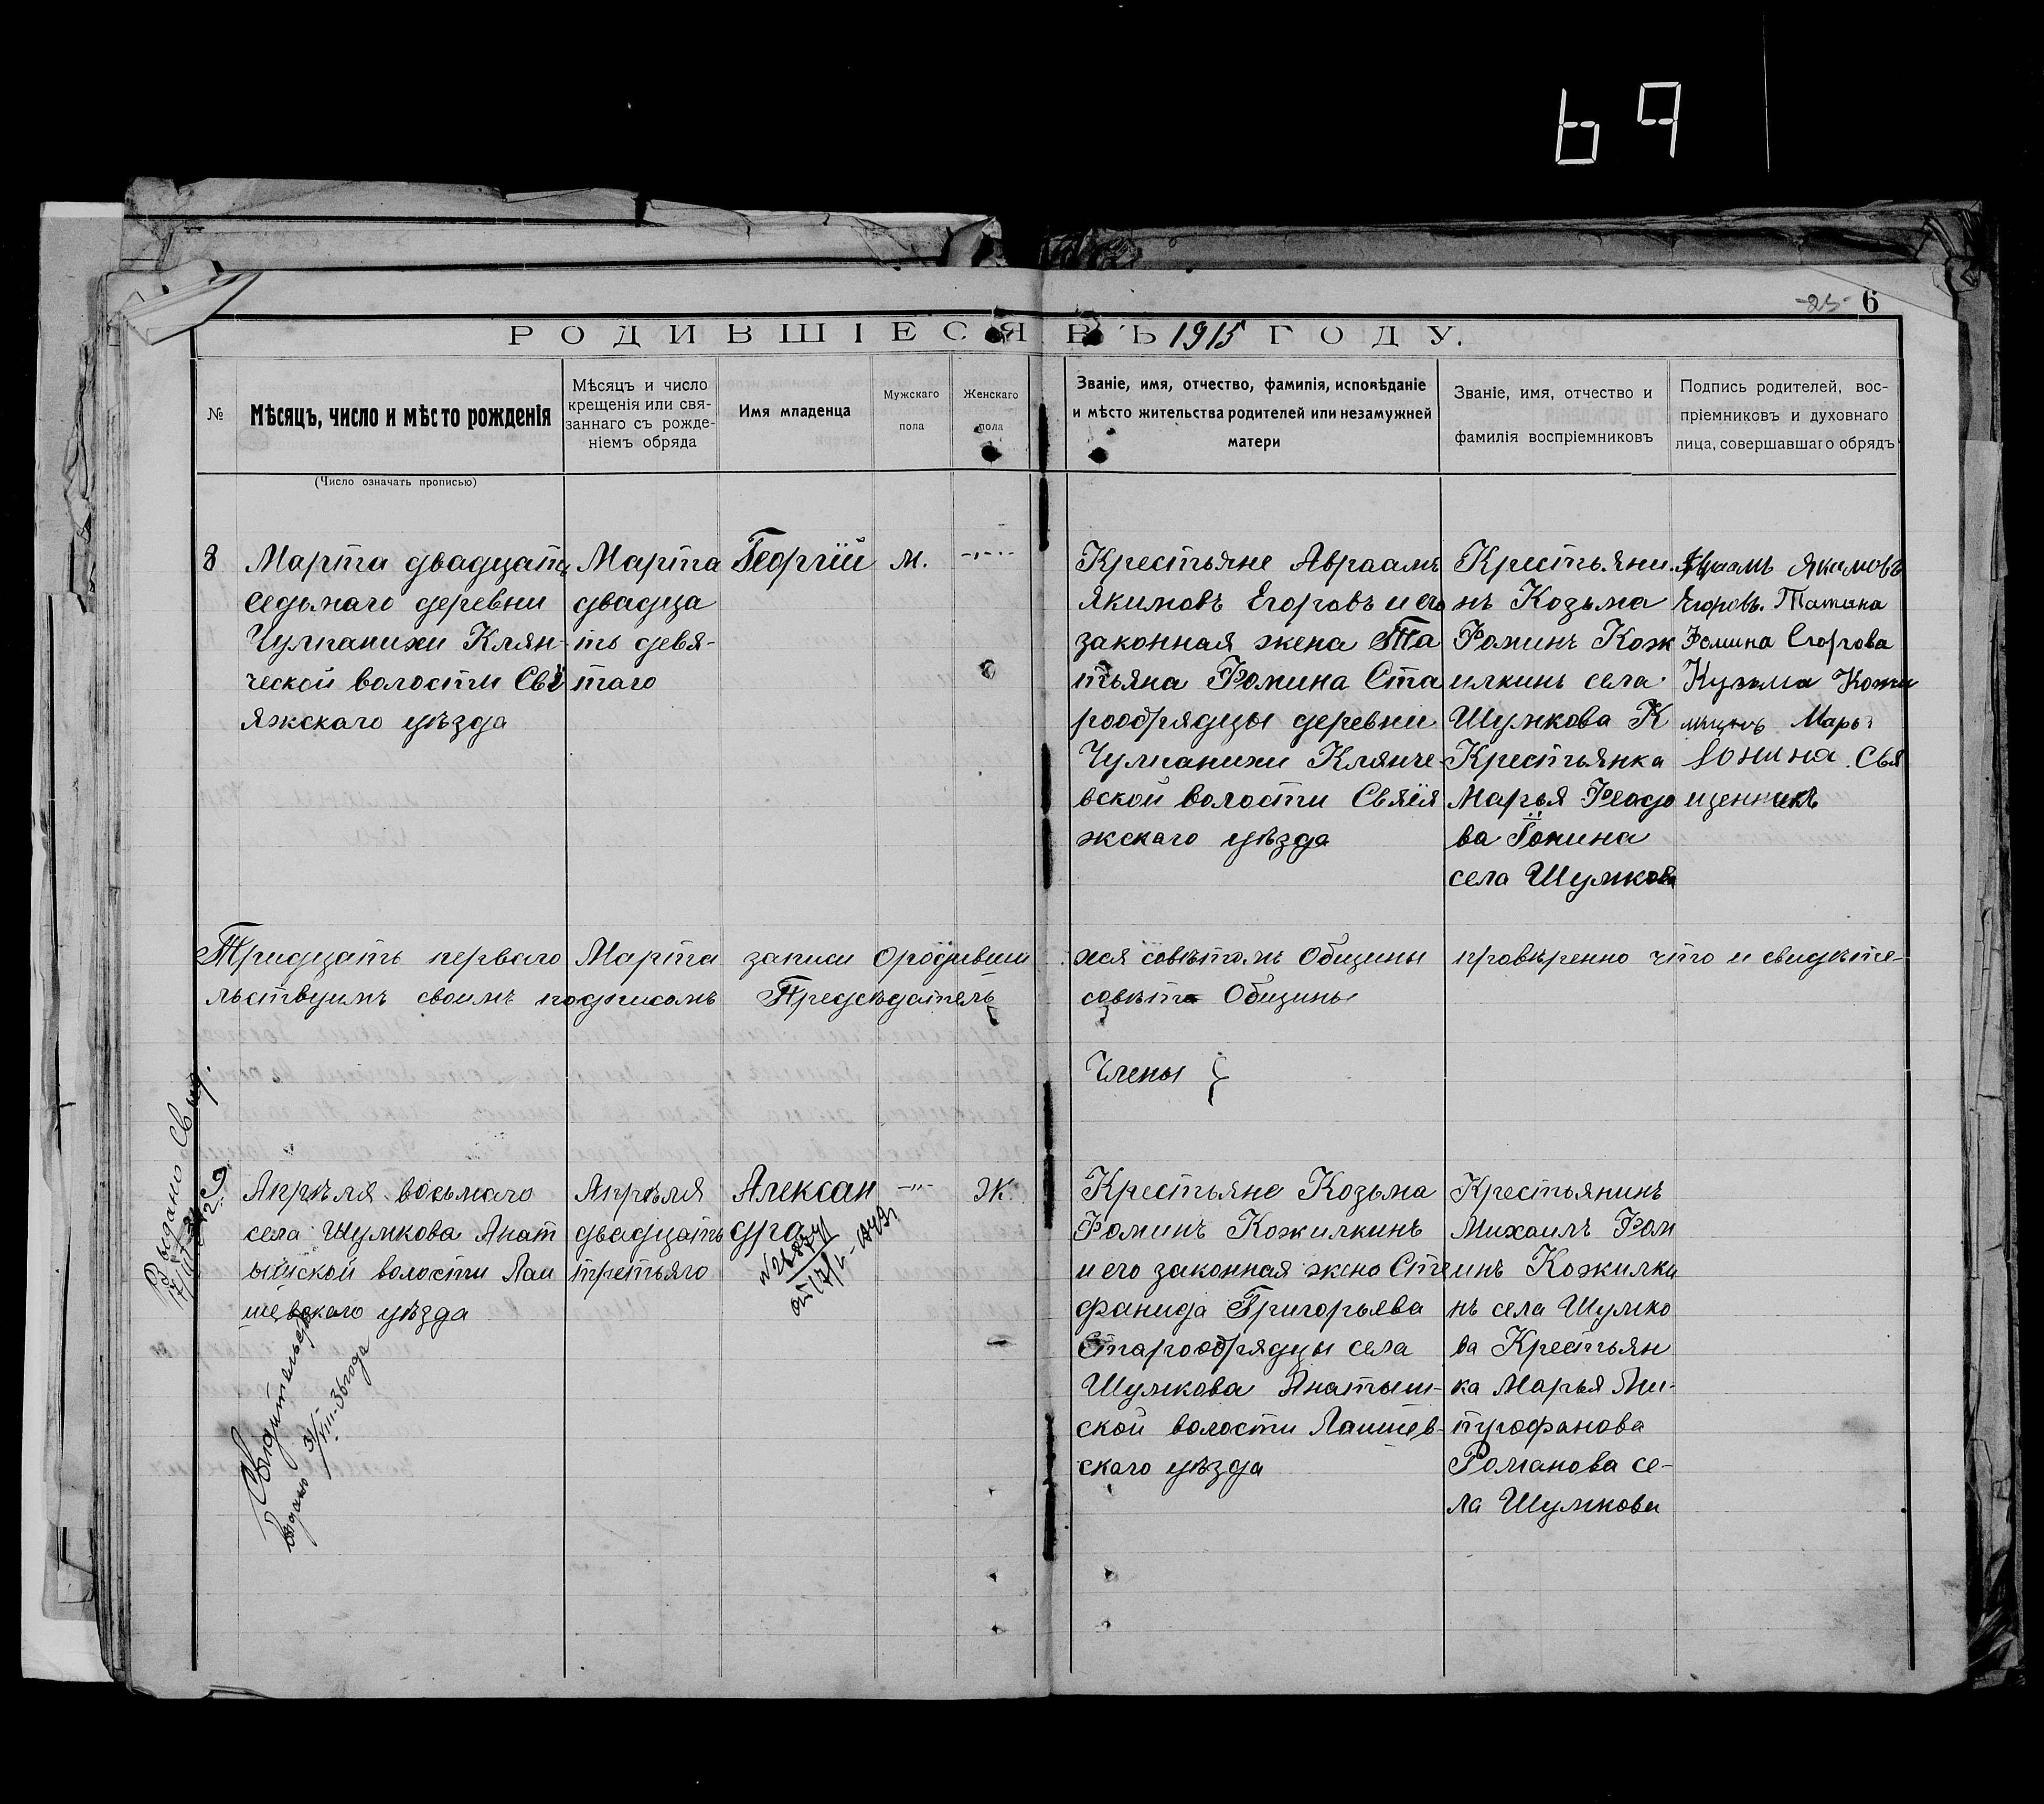 69
25 6
РОДИВШІЕСЯ ВЪ 1915 ГОДУ.
№
Мѣсяцъ, число и мѣсто рожденія
Мѣсяцъ и число
крещенія или свя-
заннаго съ рожде-
ніемъ обряда
Имя младенца
Мужскаго
пола
Женскаго
пола
Званіе, имя, отчество, фамилія, исповѣданіе
и мѣсто жительства родителей или незамужней
матери
Званіе, имя, отчество и
фамилія воспріемниковъ
Подпись родителей, вос-
пріемниковъ и духовнаго
лица, совершавшаго обрядъ
(Число означать прописью)
8
Марта двадцать
седьмаго деревни
Чулпанихи Клян-
ческой волости Сві
яжскаго уѣзда
Марта
двадца
ть девя-
таго
Георгій
м.
Крестьяне Авраамъ
Якимовъ Егоровъ и его
законная жена Та
тьяна Фомина Ста
рообрядцы деревни
Чулпанихи Клянче-
вской волости Свяія
жскаго уѣзда
Крестьяни
нъ Козьма
Фоминъ Кож
илкинъ села
Шумкова К
Крестьянка
Марья Феодо
ва Гонина
села Шумкова
Авраамъ Якимовъ
Егоровъ. Татиана
Фомина Егорова
Кузьма Кожи
Марья
Гонина. Свя
щенникъ
Тридцать перваго Марта записи ородивши
хся совѣтомъ Общины провѣренно что и свидѣте-
льствуимъ своимъ подписомъ Предсѣдатель
совѣта Общины
Члены
9
Апрѣля восьмаго
села Шумкова Анат
ышской волости Лаи
шевскаго уѣзда
Апрѣля
двадцать
третьяго
Алексан
дра
ж.
Крестьяне Козьма
Фоминъ Кожилкинъ
и его законная жена Сте
фанида Григорьева
Старообрядцы села
Шумкова Анатыш-
ской волости Лаишев-
скаго уѣзда
Крестьянинъ
Михаилъ Фом
инъ Кожилки
нъ села Шумко
ва Крестьян
ка Марья Ми-
трофанова
Романова се-
ла Шумкова
Выдано Свид.
Свидетельство
Выдано 31/VIII-36 года